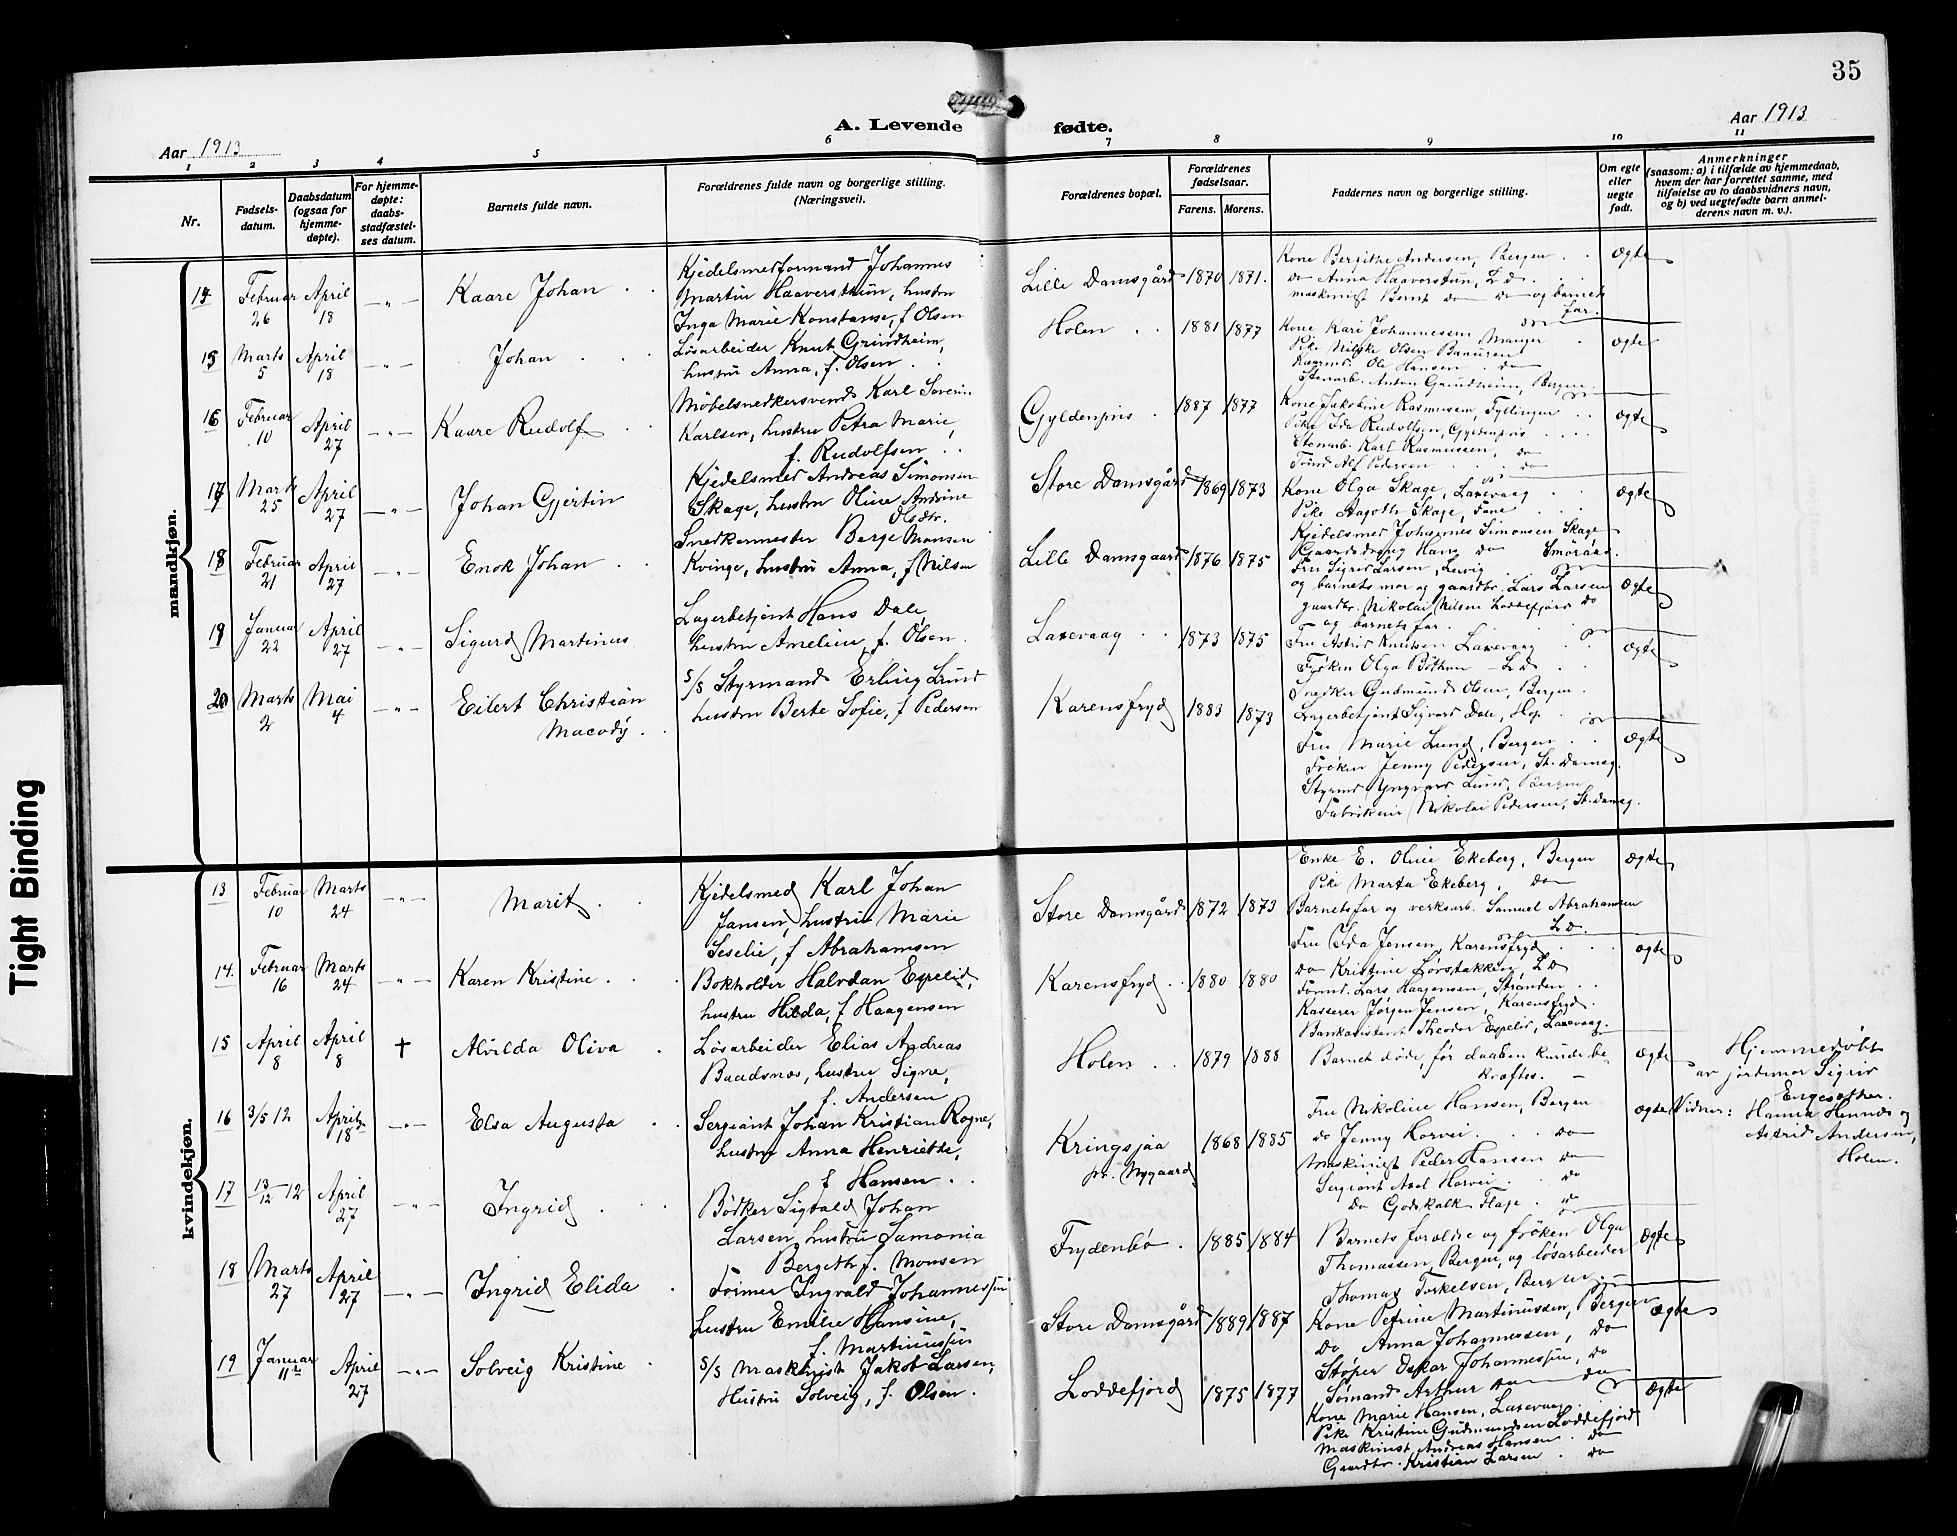 35
A. Levende fødte.
Aar 1913
Aar 1913
1 2 3 4 5 6 7 8 9 10 11
Nr.
Fødsels-
datum.
Daabsdatum
(ogsaa for
hjemme-
døpte).
For hjemme-
døpte:
daabs-
stadfæstel-
ses datum.
Barnets fulde navn.
Forældrenes fulde navn og borgerlige stilling.
(Næringsvei).
Forældrenes bopæl.
Forældrenes
fødselsaar.
Farens. Morens.
Faddernes navn og borgerlige stilling.
Om egte
eller
uegte
født.
Anmerkninger
(saasom: a) i tilfælde av hjemmedaab,
hvem der har forrettet samme, med
tilføielse av to daabsvidners navn,
og b) ved uegtefødte barn anmel-
derens navn m. v.).
mandkjøn.
14
Februar
26
April
18
— " —
Kaare Johan
Kjedelsmedformand Johannes
Martin Haaverstuen, hustru
Inga Marie Konstanse, f Olsen
Lille Damsgård
1870 1871.
Kone Bergithe Andersen, Bergen
do Anna Haaverstun, L d.
maskinist Bernt do do og barnets
far.
Ægte
15
Marts
5
April
18
— " —
Johan
Løsarbeider Knut Grindheim,
hustru Anna, f. Olsen
Holen
1881 1877
Kone Kari Johannessen Manger
Pike Nilske Olsen
Ole Hansen do
Stenarb. Anton Grindheim, Bergen
Ægte
16
Februar
10
April
27
— " —
Kaare Rudolf
Møbelsnedkersvend Karl Severin
Karlsen, hustru Petra Marie,
f. Rudolfsen
Gyldenpris
1887 1877
Kone Jakobine Rasmussen, Fyllingen
Pike Ida Rudolfsen, Gyldenpris
Stenarb. Karl Rasmussen, do
Tømd Alf Pedersen do
Ægte
17
Marts
25
April
27
— " —
Johan Gjertin
Kjedelsmed Andreas Simonsen
Skage, hustru Oline Andrine
Olsdtr.
Store Damsgård
1869 1873
Kone Olga Skage, Laxevaag
Pike Aagothe Skage, Fane
Kjedelsmed Johannes Simonsen Skage
Gaardsdreng Hans do Smøraas.
Ægte
18
Februar
21
April
27
— " —
Enok Johan
Snedkermester Berge Monsen
Kvinge, hustru Anna, f Nilsen
Lille Damsgaard
1876 1875
Fru Sigrid Larsen, Lervig
og barnets mor og gaardbr. Lars Larsen
gaardbr. Nikolai Nilsen Loddefjord do
og barnets far.
Ægte
19
Januar
22
April
27
— " —
Sigurd Martinus
Lagerbetjent Hans Dale
hustru Ameline, f. Olsen.
Laxevaag
1873 1875
Fru Astrid Knutsen Laxevaag
Frøken Olga Bøthun – L d
Snedker Gudmund Olsen, Bergen.
Lagerbetjent Sigvard Dale, Hop
Ægte
20
Marts
2
Mai
4
— " —
Eilert Christian
Macody
S/S Styrmand Erling Lund
hustru Berte Sofie, f Pedersen
Karensfryd
1883 1873
Fru Marie Lund, Bergen
Frøken Jenny Pedersen, St. Damsg.
Styrmd Yngvard Lund, Bergen
Fabrikeier Nikolai Pedersen, St. Damsg.
Ægte
kvindekjøn.
13
Februar
10
Marts
24
— " —
Marit
Kjedelsmed Karl Johan
Jansen, hustru Marie
Seselie, f Abrahamsen
Store Damsgård
1872 1873
Enke E. Oline Ekeberg, Bergen
Pike Marta Ekeberg, do
Barnets far og verksarb. Samuel Abrahamsen
L d.
Ægte
14.
Februar
16
Marts
24
— " —
Karen Kristine
Bokholder Halvdan Espelid,
hustru Hilda, f Haagensen
Karensfryd
1880 1880
Fru Ida Jensen, Karensfryd
do Kristine Løvstakken, L d
Tømd. Lars Haagensen, Stranden
Kasserer Jørgen Jensen, Karensfryd.
Bankassistent Theodor Espelid, Laxevaag.
Ægte
15
April
8
April
8
†
Alvilda Oliva
Løsarbeider Elias Andreas
Baadsnes, hustru Signe,
f. Andersen
Holen
1879 1888
Barnet døde, før daaben kunde be-
kræftes.
Ægte
Hjemmedøbt
av jordmor Sigrid
Engesæther.
Vidner: Hanna Hennes og
Astrid Andersen,
Holen.
16
3/5 12
April
18
— " —
Elsa Augusta
Sergeant Johan Kristian Rogne,
hustru Anna Henriette,
f Hansen
Kringsjaa
pr. Nygaard
1868 1885
Fru Nikoline Hansen, Bergen
do Jenny Horvei do
Maskinist Peder Hansen do
Sergeant Axel Horvei do
do Godskalk Flage do
Ægte
17
13/12 12
April
27
— " —
Ingrid
Bødker Sigvald Johan
Larsen, hustru Samonia
Bergethe f. Monsen
Frydenbø
1885 1884
Barnets forældre og frøken Olga
Thomassen, Bergen, og løsarbeider
Thomas Torkelsen, Bergen
Ægte
18
Marts
27
April
27
— " —
Ingrid Elida
Former Ingvald Johannessen
hustru Emilie Hansine,
f. Martinussen
Store Damsgård
1889 1887
Kone Petrine Martinussen, Bergen
do Anna Johannessen, do
Støper Oskar Johannessen, do
Sømand Arthur do do
Ægte
19
Januar
11te
April
27
— " —
Solveig Kristine
S/S Maskinist Jakob Larsen,
Hustru Solveig, f. Olson.
Loddefjord
1875 1877
Kone Marie Hansen, Laxevaag
Pike Kristine Gudmundsen Loddefjord
Maskinist Andreas Hansen do
Gaardbr. Kristian Larsen do
Ægte
Tight Binding